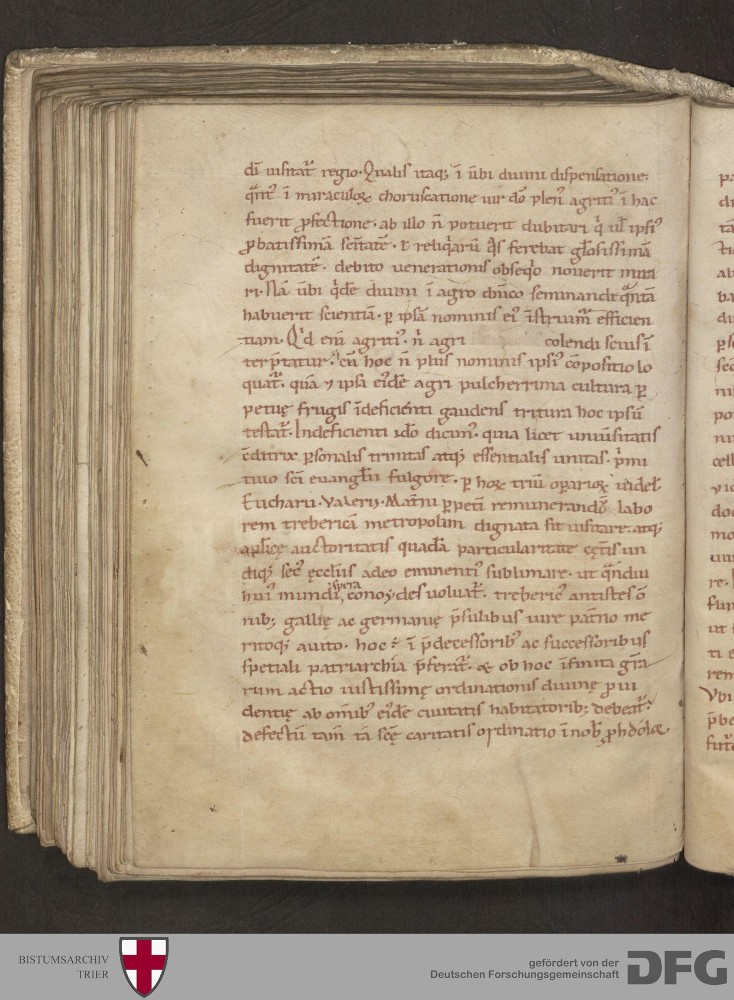 dī uisitat᷑ regio. Qualis itaq; ī ūbi diuini dispensatione:
q̄nt᷒ ī miraculoꝝ choruscatione uir dō plen᷒ agriti᷒ ī hac
fuerit ꝓfectione. ab illo n̄ potuerit dubitari q' ul̄ ipsi᷒
ꝓbatissimā sc̄itatē. ł reliq̓arū ferebat gl̄osissimā
dignitatē. debito uenerationis obseq̓o nouerit mira
ri. Nā ūbi q̓dē diuini ī agro dn̄ico seminandi q̄ntā
habuerit scientiā. ꝑ ipsā nominis ei᷒ efficien
tiam. Q'd eni agriti᷒. n' agri colendi scius ī
terp̄tatur. cū hoc n̄ plus nominis ipsi᷒ cōpositio lo
quat᷑. quā ⁊ ipsi eidē agri pulcherrima cultura ꝑ
petuę frugis īdeficiēti gaudens tritura hoc ipsū
testat᷑. Indeficienti ido dicim᷒. quia licet uniūsitatis
cditrix ꝑsonalis trinitas atq; essentialis unitas. p̓mi
tiuo sc̄i euanglīi fulgore. ꝑ hoꝝ triū oꝑarioꝝ uidel᷒.
Eucharii. Valerii. Mat̄ni ꝑpetī remunerandoꝝ labo
rem trebericā metropolim dignata sit uisitare. atq;
apl̄icę auctoritatis quadā particularitate cęt̄is un
diq; sec᷒ ęccliis adeo eminenti᷒ sublimare. ut q̄ndiu
hui᷒ mundi spera conoydes uoluat᷑. treberic᷒ antistes ō
nib; gallię ac germanię p̄sulibus iure pat̄no me
ritoq; auito. hoc ÷ ī p̄decessorib᷒ ac successoribus
spetiali patriarchia p̄ferat᷑. & ob hoc īfinita gr̄a
rum actio iustissimę ordinationis diuinę ꝓui
dentię ab om̄ib᷒ eidē ciuitatis habitatorib; debeat᷑.
defectū tam̄ tā sc̄ę caritatis ordinatio ī nob̄ ꝓh dolor.
BISTUMSARCHIV
TRIER
gefördert von der
Deutschen Forschungsgemeinschaft
DFG